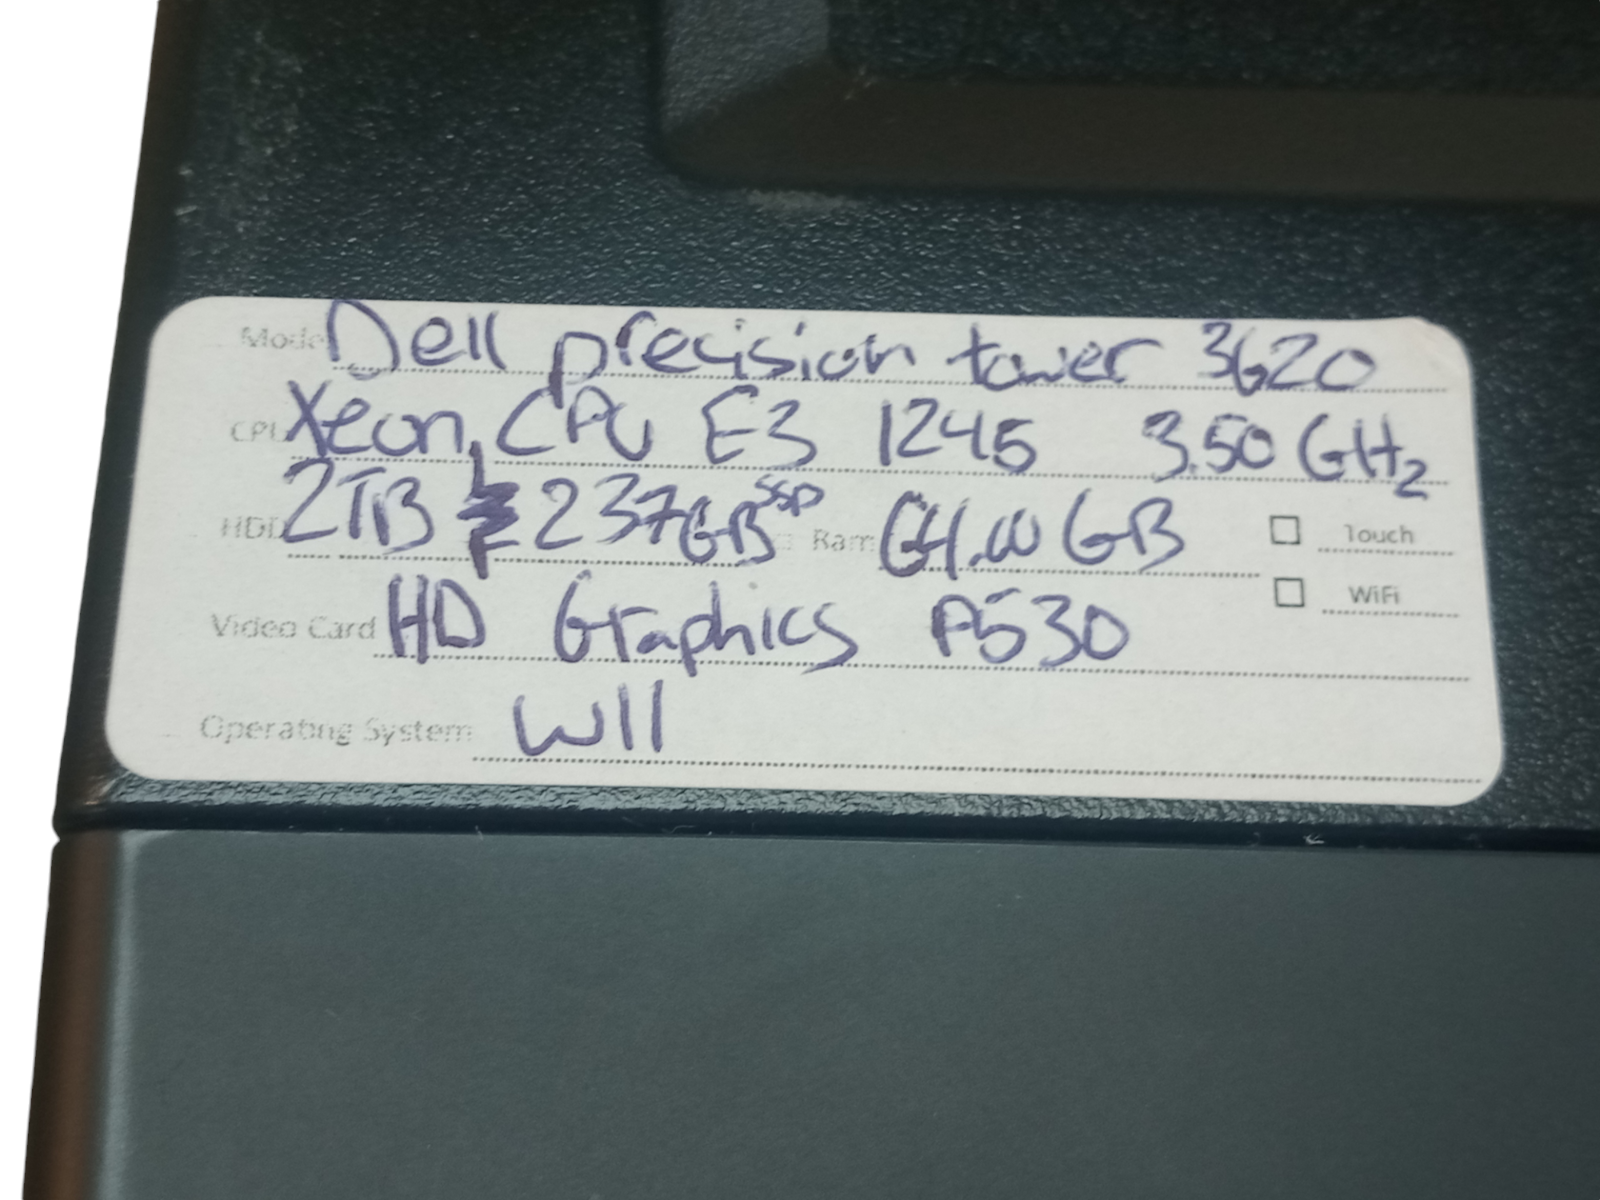 Model Dell precision tower 3620
CPU Xeon, CPU E3 1245 3.50 GHz
HDD 2TB 237GB SSD Ram 64.00 GB Touch
WiFi
Video Card HD Graphics P530
Operating System W11